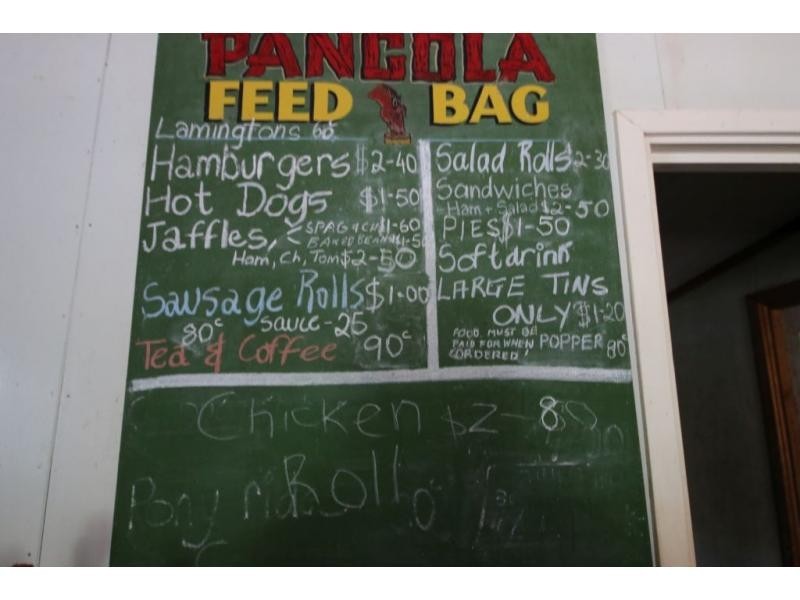 PANGOLA
FEED BAG
Lamingtons 60c
Hamburgers $2-40
Hot Dogs $1-50
Jaffles, SPAG + CH $1-60
BAKED BEANS $1-50
Ham, Ch, Tom $2-50
Sausage Rolls $1-00
80c sauce-25
Tea & Coffee 90c
Salad Rolls 2-30
Sandwiches
Ham + Salad $2-50
PIES $1-50
Soft drink
LARGE TINS
ONLY $1-20
FOOD MUST BE
PAID FOR WHEN
ORDERED! POPPER 80c
Chicken $2-80
Pony Roll